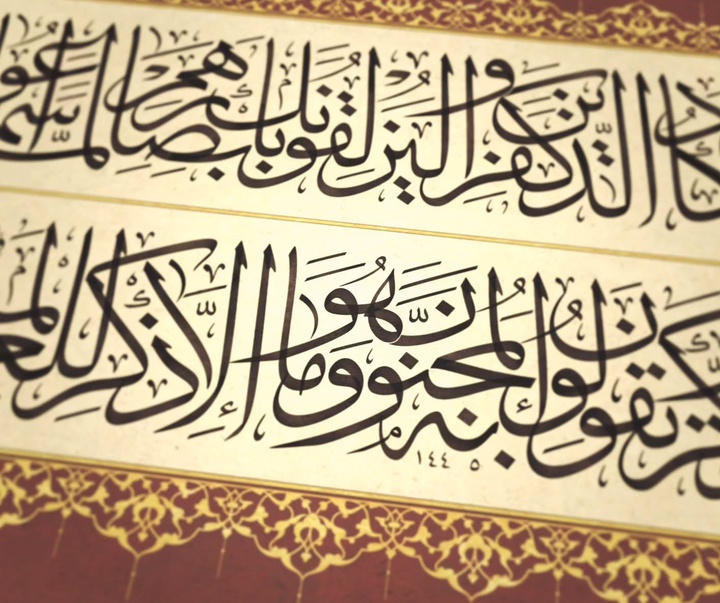 يكاد الذين كفروا ليزلقونك بأبصارهم لما سمعوا
ويقولون إنه لمجنون وما هو إلا ذكر للعالمين
١٤٤٥